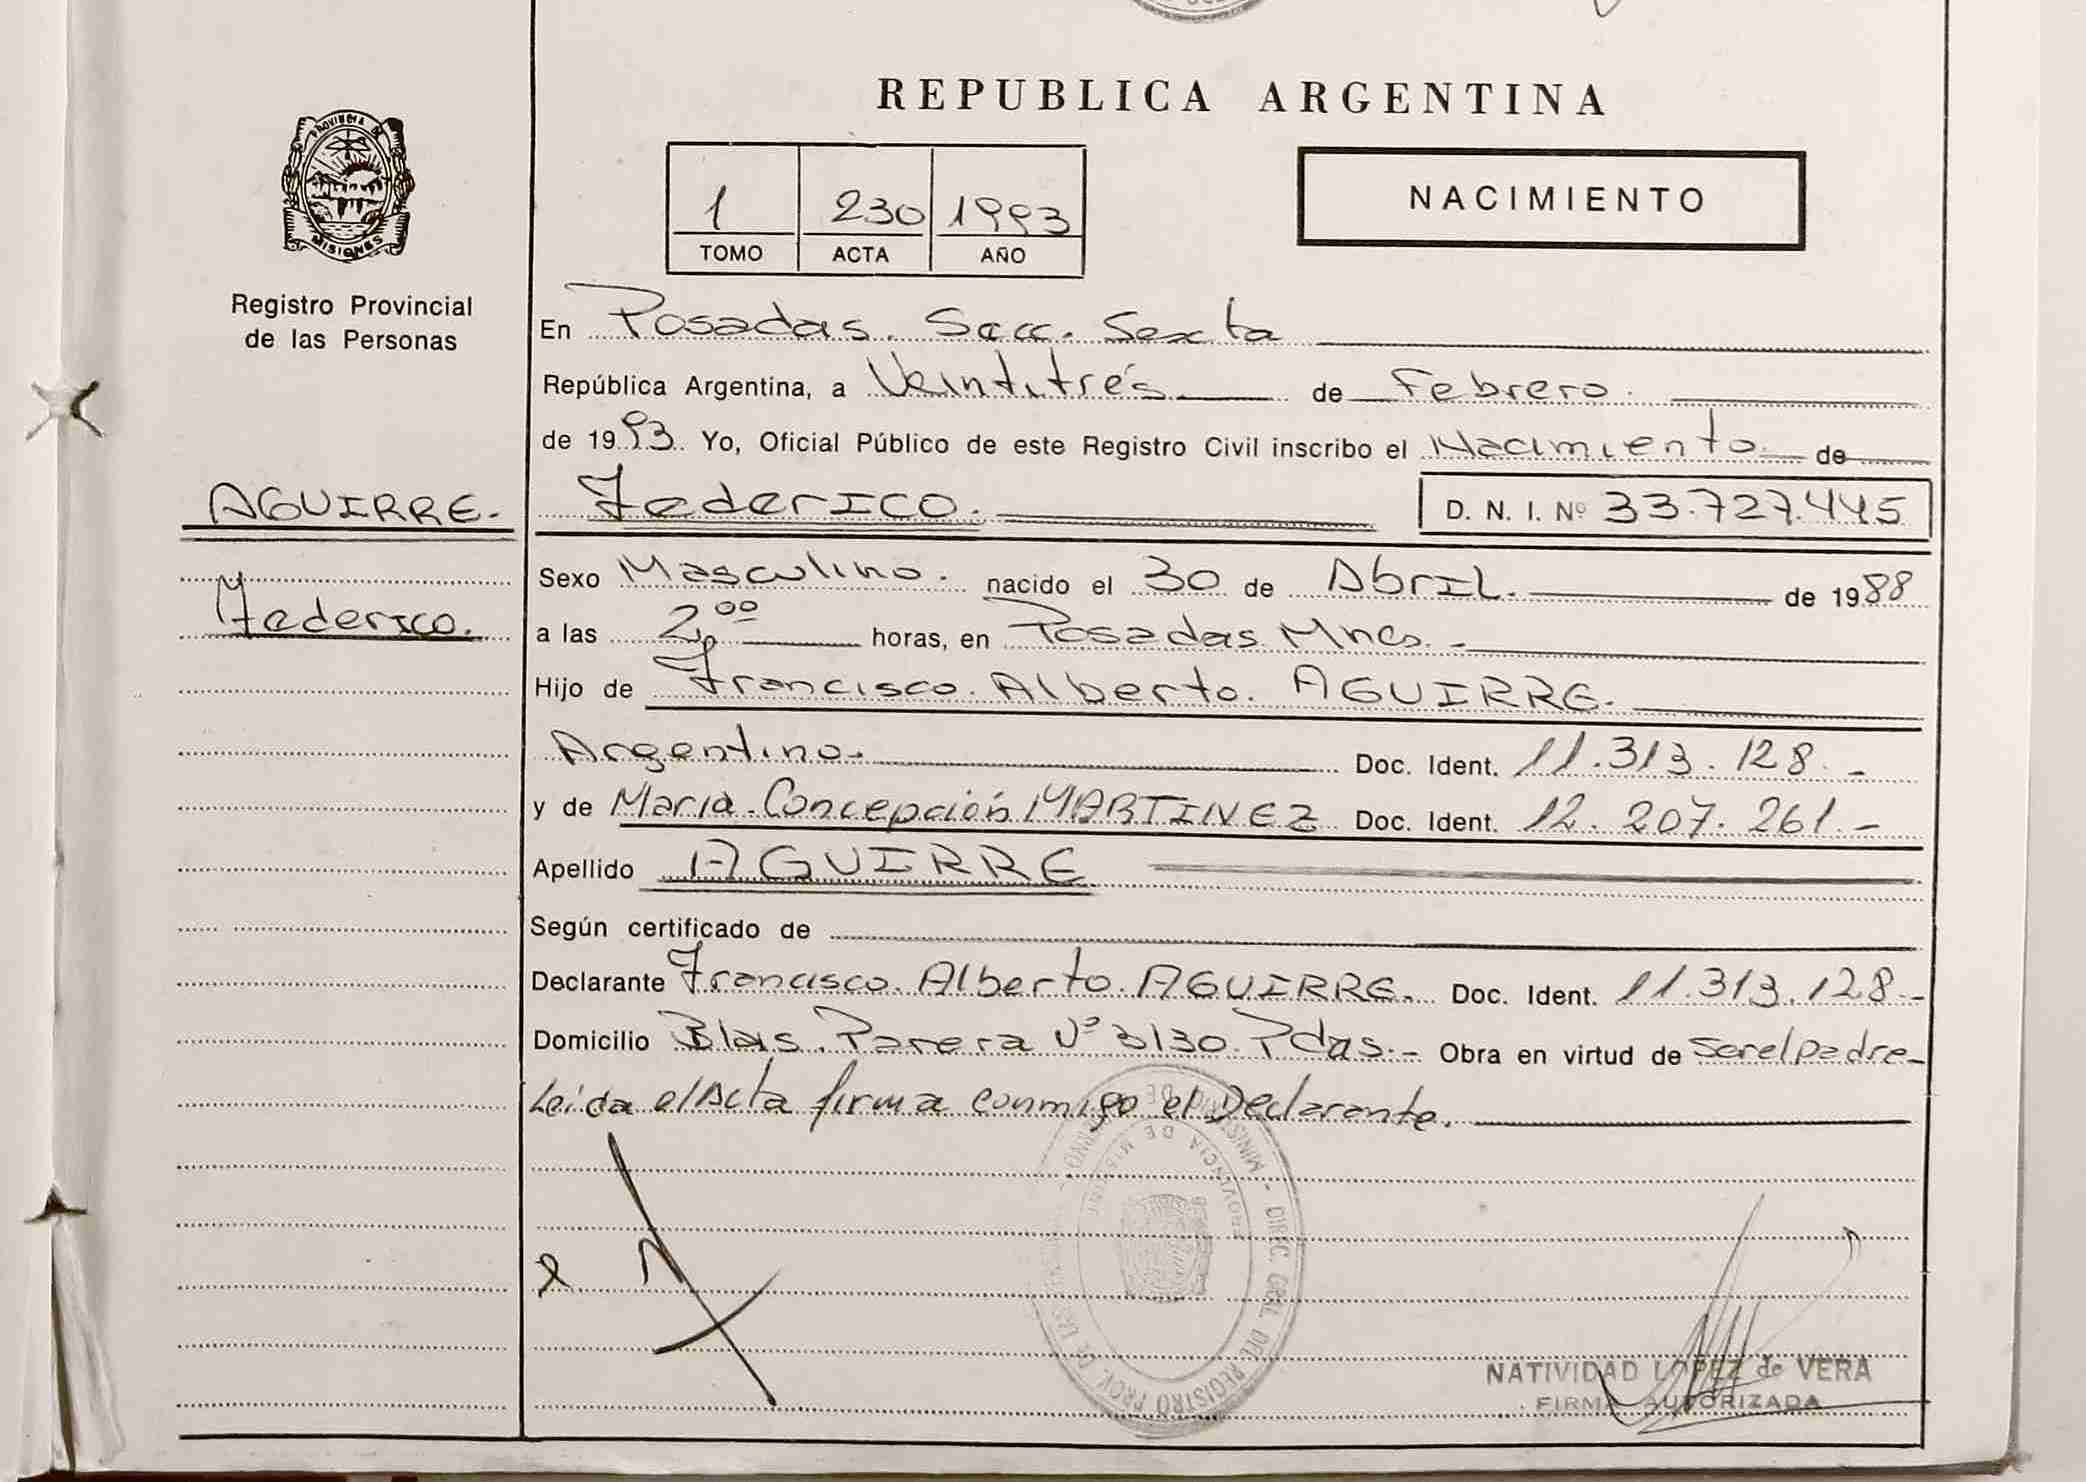 REPUBLICA ARGENTINA
PROVINCIA DE
MISIONES
Registro Provincial
de las Personas
1 230 1993
TOMO ACTA AÑO
NACIMIENTO
En Posadas. Secc. Sexta
República Argentina, a Veintitrés de Febrero.
de 1993. Yo, Oficial Público de este Registro Civil inscribo el Nacimiento de
AGUIRRE.
Federico.
Federico. D. N. I. Nº 33.727.445
Sexo Masculino. nacido el 30 de Abril. de 1988
a las 2,00 horas, en Posadas Mnes. -
Hijo de Francisco. Alberto. AGUIRRE.
Argentino. Doc. Ident. 11.313.128. -
y de María. Concepción MARTINEZ Doc. Ident. 12.207.261. -
Apellido AGUIRRE
Según certificado de
Declarante Francisco. Alberto. AGUIRRE. Doc. Ident. 11.313.128. -
Domicilio Blas. Parera Nº 3130. Pdas. - Obra en virtud de ser el padre -
Leída el Acta firma conmigo el Declarante.
MINIS DIREC. GRAL. DEL REGISTRO PROV. DE LAS
PROVINCIA DE MIS
NATIVIDAD LOPEZ de VERA
FIRMA AUTORIZADA